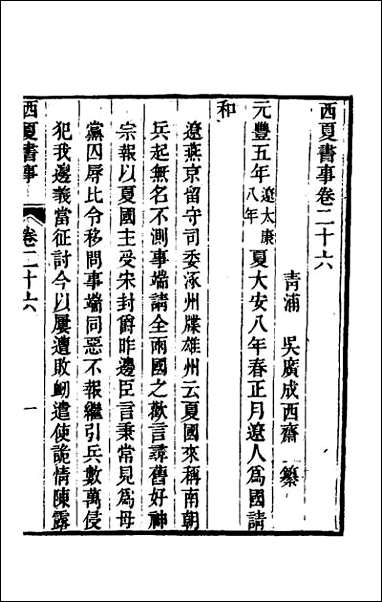 西夏書事卷二十六
青浦 吳廣成西齋 纂
元豐五年遼大康八年夏大安八年春正月遼人爲國請
和
遼燕京留守司委涿州牒雄州云夏國來稱南朝
兵起無名不測事端請全兩國之歡言尋舊好神
宗報以夏國主受宋封爵昨邊臣言秉常見爲母
黨囚辱比令移問事端同惡不報繼引兵數萬侵
犯我邊義當征討今以屢遭敗衂遣使詭情陳露
西夏書事 卷二十六 一